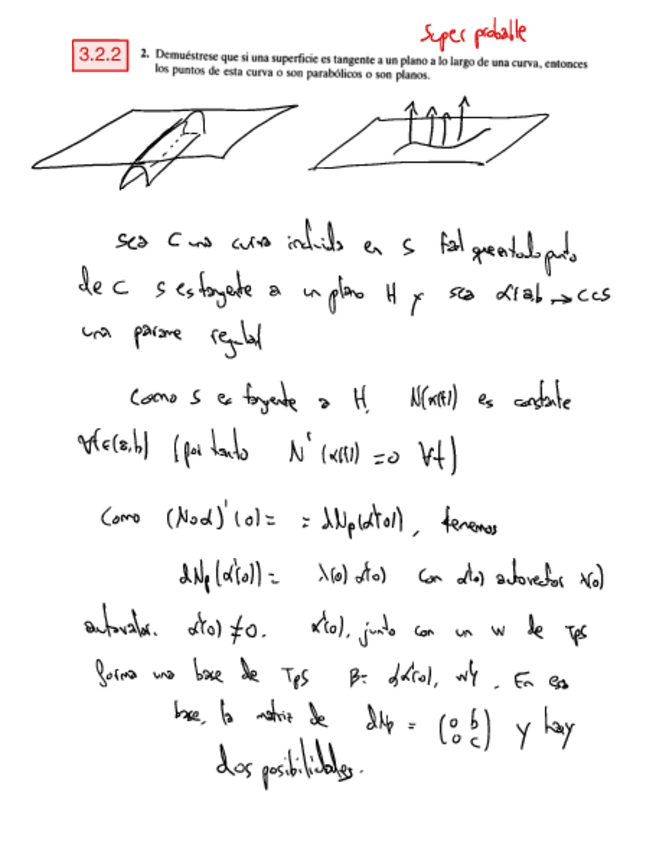 Super probable
3.2.2
2. Demuéstrese que si una superficie es tangente a un plano a lo largo de una curva, entonces
los puntos de esta curva o son parabólicos o son planos.
sea C una curva incluida en S tal que en todo punto
de C S es tangente a un plano H y sea α:(a,b → C⊂S
una parame regular
Como S es tangente a H, N(α(t)) es constante
∀t∈(a,b) (por tanto N'(α(t)) = 0 ∀t)
Como (N∘α)'(0) = = dNp(α'(0)), tenemos
dNp(α'(0)) = λ(0) α'(0) con α'(0) autovector λ(0)
autovalor. α'(0) ≠ 0. α'(0), junto con un w de TpS
forma una base de TpS B = {α'(0), w}. En esa
base, la matriz de dNp = (0 b
0 c) y hay
dos posibilidades.